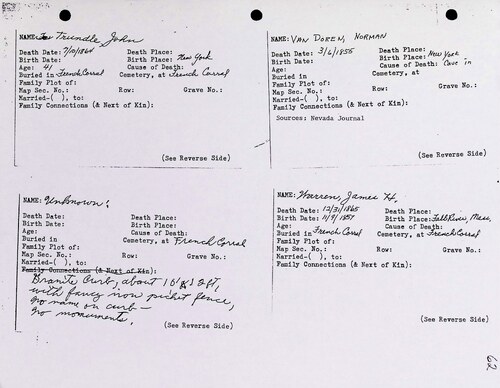 NAME: Trundle, John
Death Date: 7/10/1864 Death Place:
Birth Date: Birth Place: New York
Age: 41 Cause of Death:
Buried in French Corral Cemetery, at French Corral
Family Plot of:
Map Sec. No.: Row: Grave No.:
Married-( ), to:
Family Connections (& Next of Kin):
(See Reverse Side)
NAME: VAN DOREN, NORMAN
Death Date: 3/6/1855 Death Place:
Birth Date: Birth Place: New York
Age: Cause of Death: Cave in
Buried in Cemetery, at
Family Plot of:
Map Sec. No.: Row: Grave No.:
Married-( ), to:
Family Connections (& Next of Kin):
Sources: Nevada Journal
(See Reverse Side)
NAME: Unknown:
Death Date: Death Place:
Birth Date: Birth Place:
Age: Cause of Death:
Buried in Cemetery, at French Corral
Family Plot of:
Map Sec. No.: Row: Grave No.:
Married-( ), to:
Family Connections (& Next of Kin):
Granite Curb, about 10' x 8 ft,
with fancy iron picket fence,
no name on curb -
no monuments.
(See Reverse Side)
NAME: Warren, James H.
Death Date: 12/31/1865 Death Place:
Birth Date: 11/9/1857 Birth Place: Fall River, Mass.
Age: Cause of Death:
Buried in French Corral Cemetery, at French Corral
Family Plot of:
Map Sec. No.: Row: Grave No.:
Married-( ), to:
Family Connections (& Next of Kin):
(See Reverse Side)
62